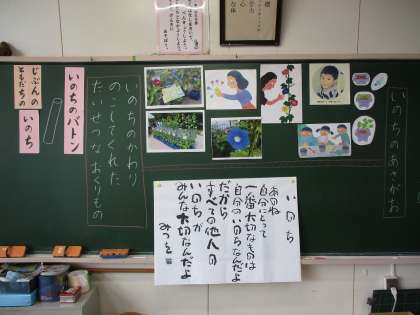 いのちのあさがお
いのちのかわり
のこしてくれた
たいせつなおくりもの
いのちのバトン
じぶんの
ともだちの
いのち
いのち
あのね
自分にとって
一番大切なものは
自分のいのちなんだよ
だから
すべての他人の
いのちが
みんな大切なんだよ
みつを